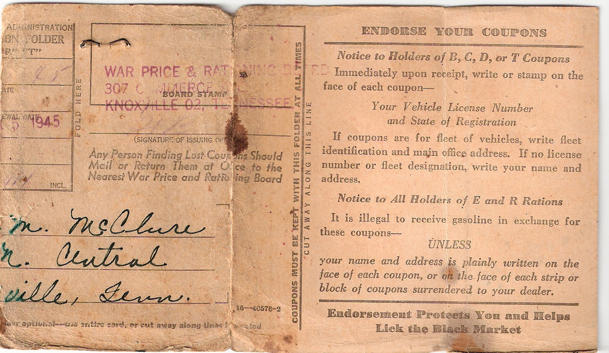 ADMINISTRATION
ON FOLDER
"T"
DATE
1945
INCL.
FOLD HERE
WAR PRICE & RATIONING
307 COMMERCE
KNOXVILLE 02, TENNESSEE
BOARD STAMP
(SIGNATURE OF ISSUING
Any Person Finding Lost Coupons Should
Mail or Return Them at Once to the
Nearest War Price and Rationing Board
m. McClure
n. Central
ville, Tenn.
entire card, or cut away along
16—40578-2
COUPONS MUST BE KEPT WITH THIS FOLDER AT ALL TIMES
CUT AWAY ALONG THIS LINE
ENDORSE YOUR COUPONS
Notice to Holders of B, C, D, or T Coupons
Immediately upon receipt, write or stamp on the
face of each coupon—
Your Vehicle License Number
and State of Registration
If coupons are for fleet of vehicles, write fleet
identification and main office address. If no license
number or fleet designation, write your name and
address.
Notice to All Holders of E and R Rations
It is illegal to receive gasoline in exchange for
these coupons—
UNLESS
your name and address is plainly written on the
face of each coupon, or on the face of each strip or
block of coupons surrendered to your dealer.
Endorsement Protects You and Helps
Lick the Black Market